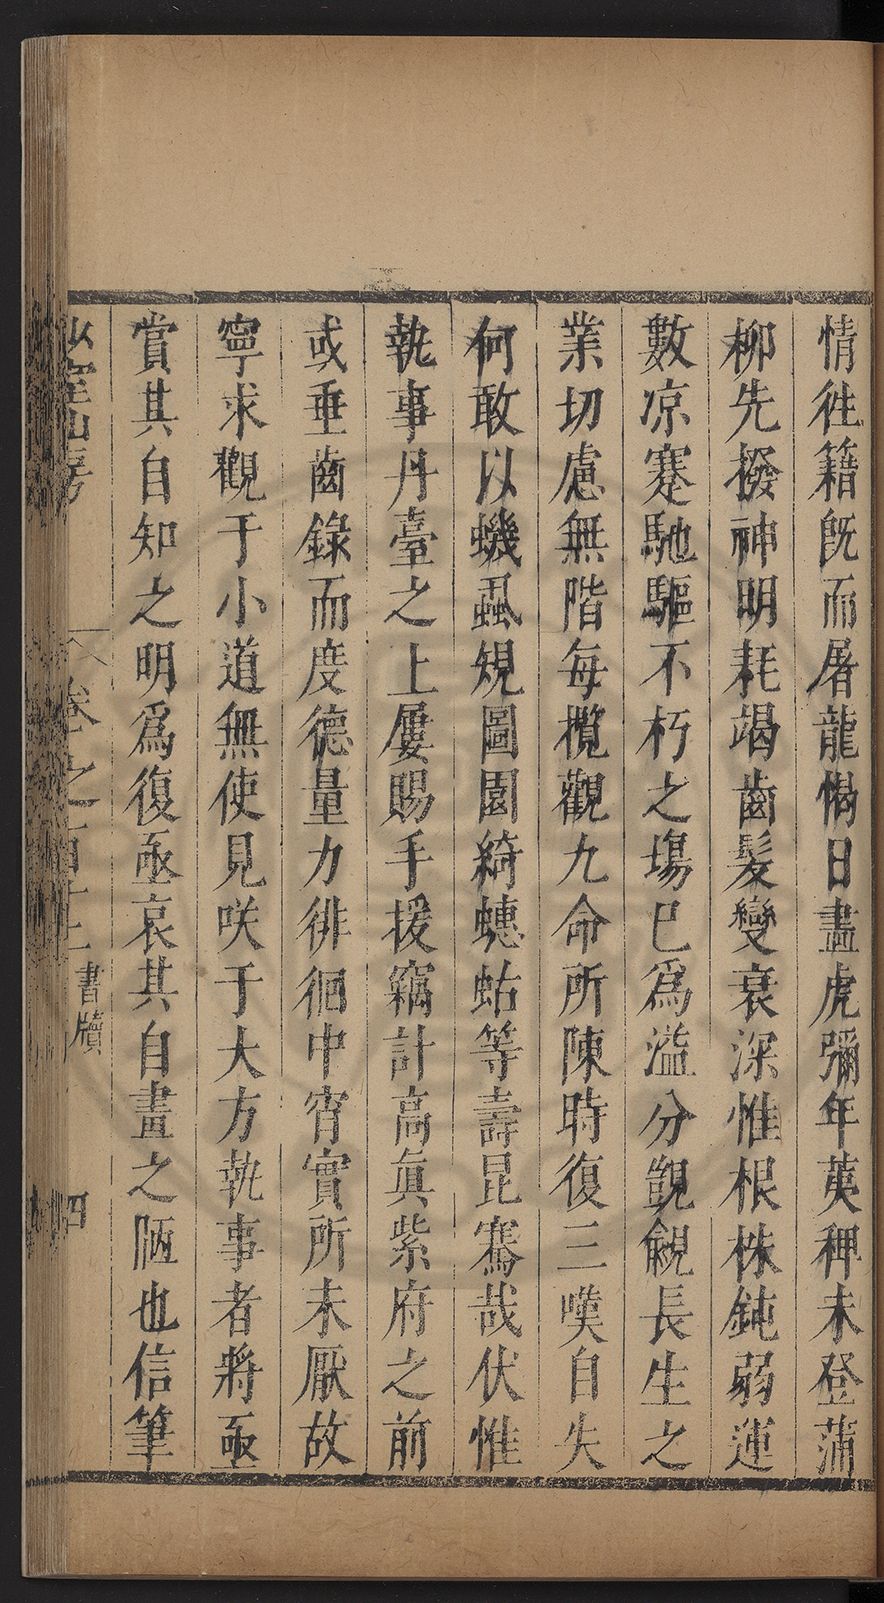 情徃籍旣而屠龍惕日畫虎彌年荑稗未登蒲
柳先撥神明耗竭齒髮變衰深惟根株鈍弱運
數凉蹇馳驅不朽之塲巳爲溢分覬覦長生之
業切慮無階每攬觀九命所陳時復三嘆自失
何敢以蟣虱規圖園綺蟪蛄等壽昆騫哉伏惟
執事丹臺之上屢賜手援竊計高眞紫府之前
或垂齒錄而度德量力徘徊中宵實所未厭故
寧求觀于小道無使見咲于大方執事者將亟
賞其自知之明爲復亟哀其自畫之陋也信筆
少室山房
卷之百十 書牘 四